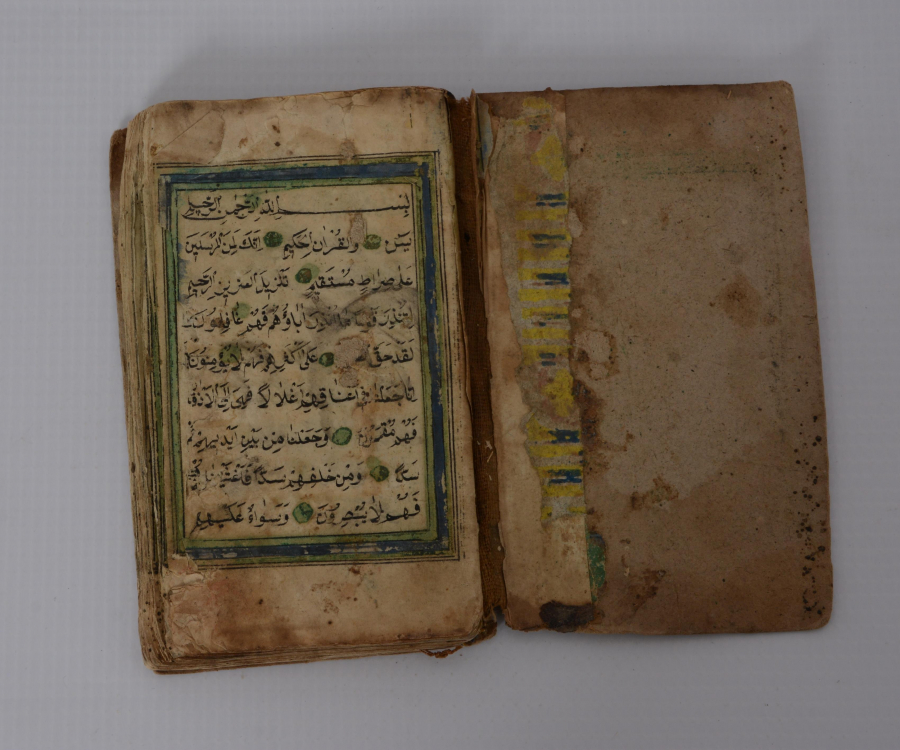 بِسْمِ اللّٰهِ الرَّحْمٰنِ الرَّحِيمِ
يٰسٓ وَالْقُرْاٰنِ الْحَكِيمِ اِنَّكَ لَمِنَ الْمُرْسَلِينَ
عَلٰى صِرَاطٍ مُسْتَقِيمٍ تَنْزِيلَ الْعَزِيزِ الرَّحِيمِ
لِتُنْذِرَ قَوْمًا مَا اُنْذِرَ اٰبَاؤُهُمْ فَهُمْ غَافِلُونَ
لَقَدْ حَقَّ عَلٰى اَكْثَرِهِمْ فَهُمْ لَا يُؤْمِنُونَ
اِنَّا جَعَلْنَا فِى اَعْنَاقِهِمْ اَغْلَالًا فَهِىَ اِلَى
فَهُمْ مُقْمَحُونَ وَجَعَلْنَا مِنْ بَيْنِ اَيْدِيهِمْ
سَدًّا وَمِنْ خَلْفِهِمْ سَدًّا
فَهُمْ لَا يُبْصِرُونَ وَسَوَاۤءٌ عَلَيْهِمْ